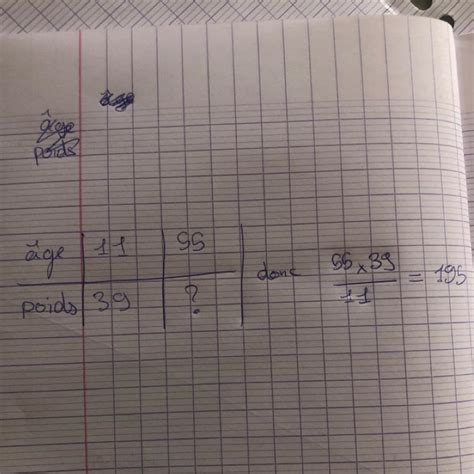 âge
âge
poids
âge 11 55
poids 39 ?
donc 55 x 39 / 11 = 195